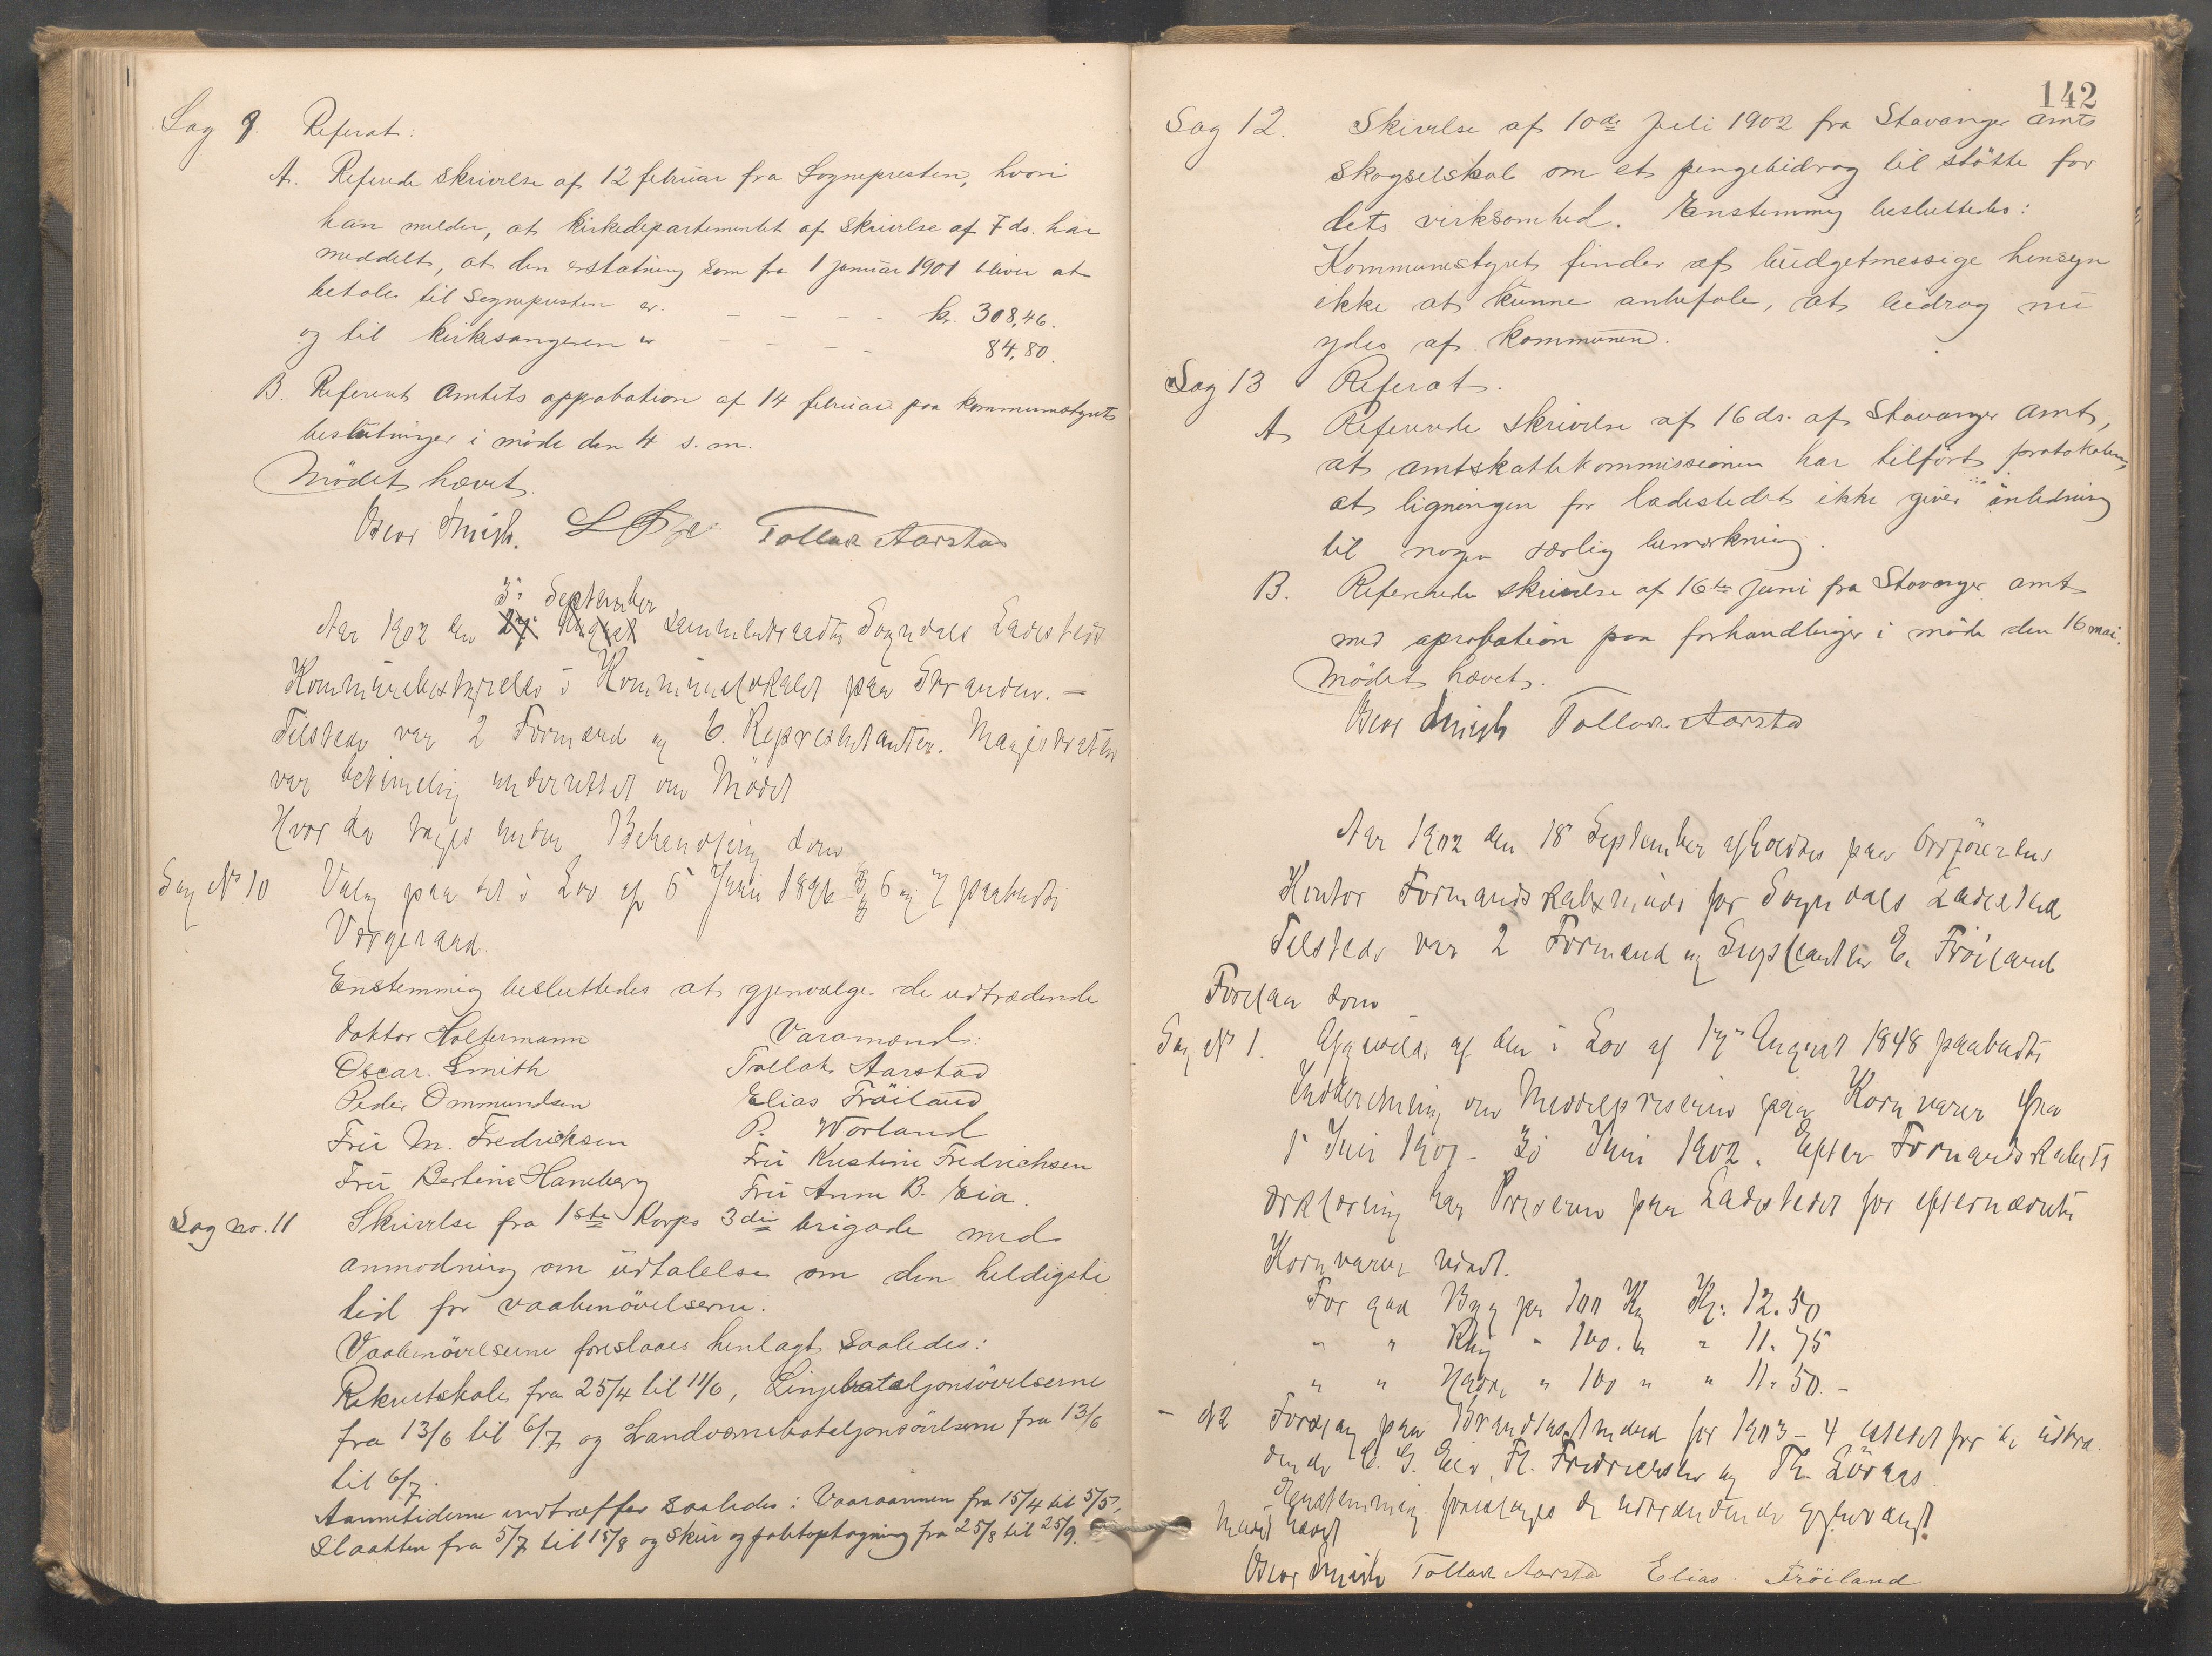 Sag 9. Referat:
A. Referede skrivelse af 12 februar fra Sognepresten, hvori
han melder, at kirkedepartementet af skrivelse af 7 ds. har
meddelt, at den erstatning som fra 1 januar 1901 bliver at
betale til Sognepresten er. - - - - kr. 308,46.
og til kirkesangeren er - - - - 84,80.
B. Referert Amtets approbation af 14 februar paa kommunestyrets
beslutninger i møde den 4 s. m.
Mödet hævet.
Oscar Smith. Tollak Aarstad
3. September
Aar 1902 den 27. August sammentraadte Sogndals Ladesteds
Kommunebestyrelse i Kommunelokalet paa Stranden. -
Tilstede var 2 Formænd og 6. Repræsentanter. Magistraten
var betimelig underrettet om Mödet
Hvor da toges under Behandling som
Sag No 10 Valg paa det i Lov af 6 Juni 1896 §§ 6 og 7 paabudte
Værgeraad.
Enstemmig besluttedes at gjenvælge de udtrædende
Doktor Holtermann Varamænd:
Oscar. Smith Tollak Aarstad
Peder Ommundsen Elias Fröiland
Fru M. Fredriksen P. Worland
Fru Bertine Hamberg Fru Kristine Fredrichsen
Fru Anna B. Eia.
Sag no. 11 Skrivelse fra 1ste Korps 3die brigade med
anmodning om udtalelse om den heldigste
tid for vaabenövelserne.
Vaabenövelserne foreslaaes henlagt saaledes:
Rekrutskole fra 25/4 til 11/6, Linjebataljonsövelserne
fra 13/6 til 6/7 og Landværnsbataljonsövelserne fra 13/6
til 6/7.
Aannetiderne indtræffer saaledes: Vaaraannen fra 15/4 til 5/5,
Slaatten fra 5/7 til 15/8 og skur og potetoptagning fra 25/8 til 25/9.
142
Sag 12. Skrivelse af 10de Juli 1902 fra Stavanger amts
skogselskab om et pengebidrag til stötte for
dets virksomhed. Enstemmig besluttedes:
Kommunestyret finder af budgetmessige hensyn
ikke at kunne anbefale, at bidrag nu
ydes af kommunen.
Sag 13 Referat.
A Refererede skrivelse af 16 ds. af Stavanger Amt,
at amtskattekommissionen har tilfört protokolen,
at ligningen for ladestedet ikke giver anledning
til nogen særlig bemerkning.
B. Refererede skrivelse af 16de Juni fra Stavanger amt
med aprobation paa forhandlinger i möde den 16 mai.
Mödet hævet.
Oscar Smith Tollak Aarstad
Aar 1902 den 18 September afholdtes paa Ordförerens
Kontor Formandskabsmöde for Sogndals Ladested
Tilstede var 2 Formænd og Suppleanten E. Fröiland
Forelaa som
Sag No 1. Afgivelse af den i Lov af 17 August 1848 paabudte
Indberetning om Middelpriserne paa Kornvarer fra
1 Juli 1901 - 30 Juni 1902. Efter Formandskabets
erklæring har Priserne paa Ladestedet for efternævnte
Kornvarer været.
For god Byg pr 100 Kg Kr. 12.50
" " Rug " 100. " " 11. 75
" " Havre " 100 " " 11. 50. -
- No 2 Forslag paa for 1903 - 4 istedet for de udtræ-
dende C. G. Eia, Fr. Fredriksen og Th. Lövaas.
Enstemmig foreslaaes de udtrædende gjenvalgt.
Mödet hævet
Oscar Smith Tollak Aarstad Elias Fröiland